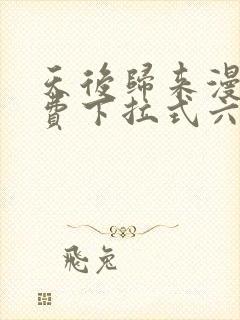 天後歸來漫
費下拉式六
飛兔